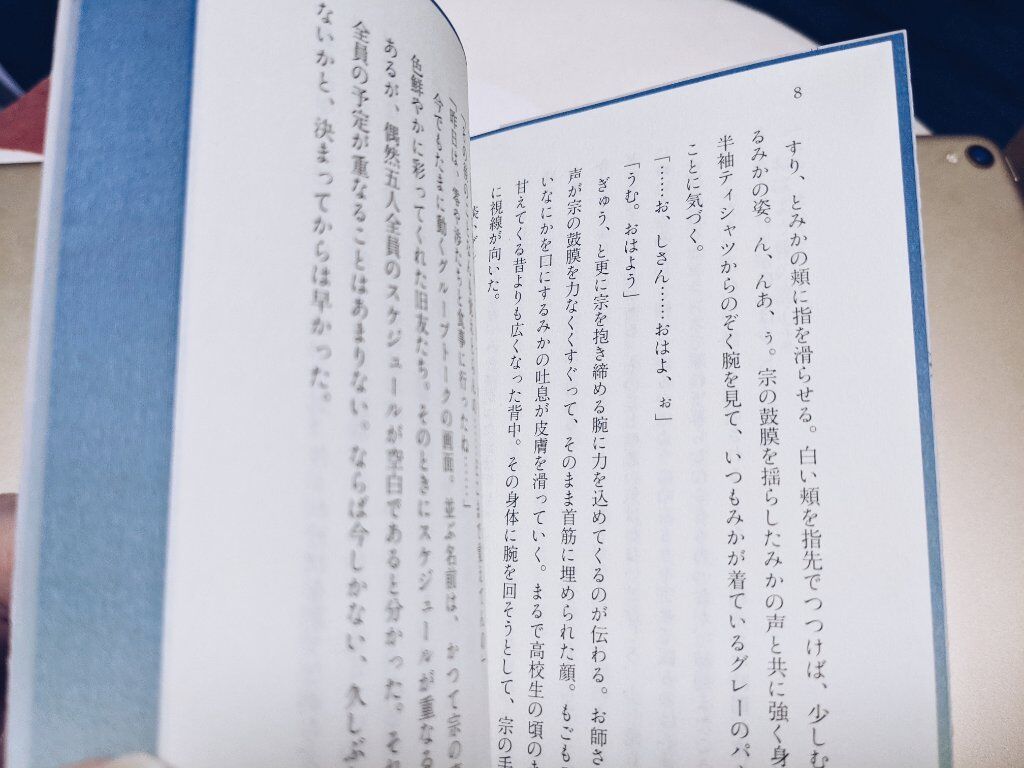 8
すり、とみかの頬に指を滑らせる。白い頬を指先でつつけば、少しむ
るみかの姿。ん、んあ、ぅ。宗の鼓膜を揺らしたみかの声と共に強く身
半袖ティシャツからのぞく腕を見て、いつもみかが着ているグレーのパ
ことに気づく。
「……お、しさん……おはよ、ぉ」
「うむ。おはよう」
ぎゅう、と更に宗を抱き締める腕に力を込めてくるのが伝わる。お師さ
声が宗の鼓膜を力なくくすぐって、そのまま首筋に埋められた顔。もごも
いなにかを口にするみかの吐息が皮膚を滑っていく。まるで高校生の頃のも
甘えてくる昔よりも広くなった背中。その身体に腕を回そうとして、宗の手
に視線が向いた。
「昨日は、零や渉たちと食事に行ったね……」
今でもたまに動くグループトークの画面。並ぶ名前は、かつて宗の
色鮮やかに彩ってくれた旧友たち。そのときにスケジュールが重なる
あるが、偶然五人全員のスケジュールが空白であると分かった。それ
全員の予定が重なることはあまりない。ならば今しかない、久しぶ
ないかと、決まってからは早かった。